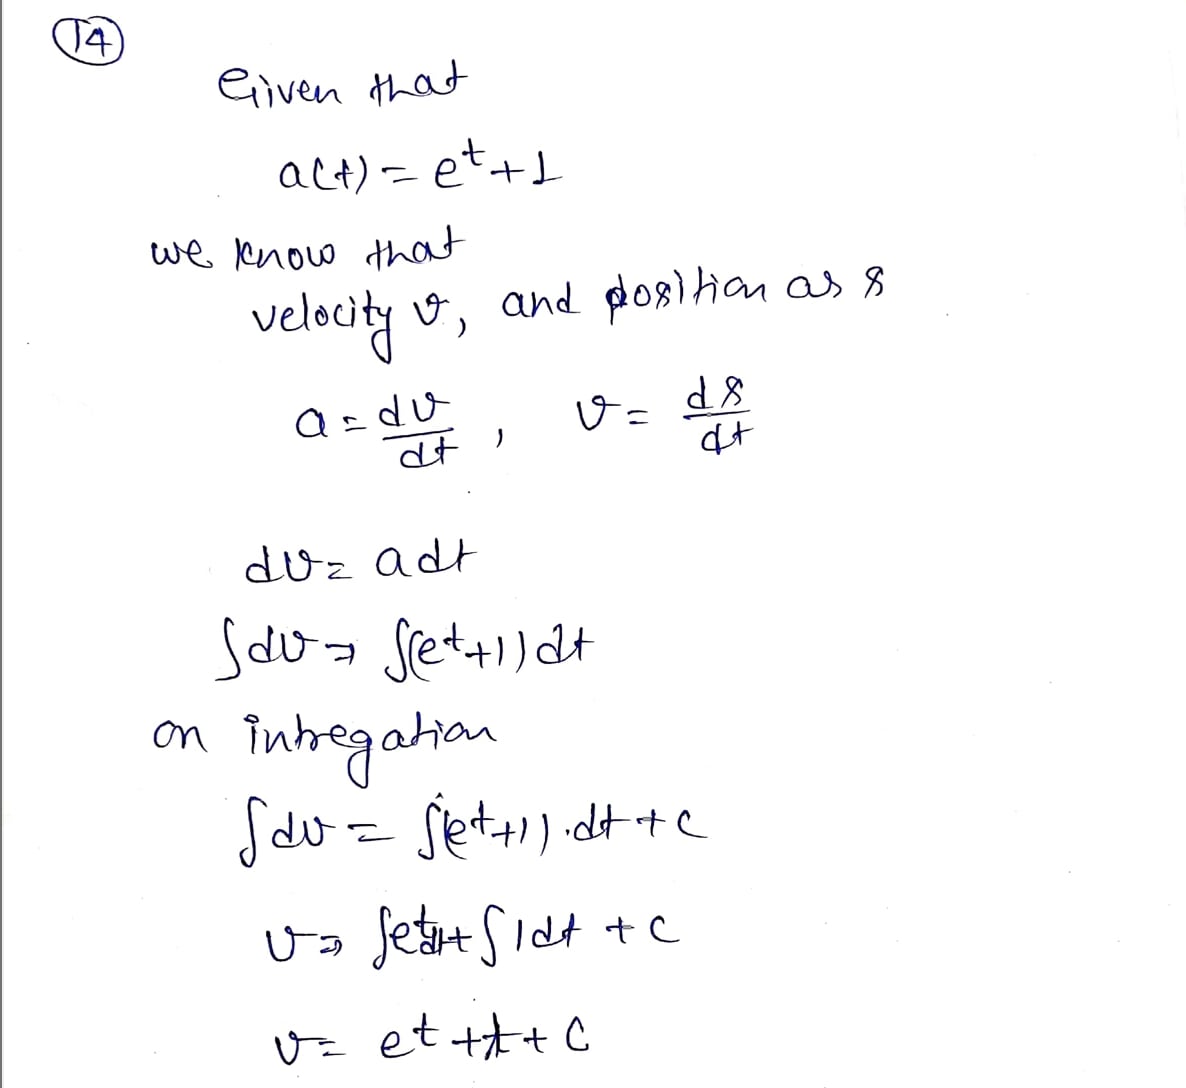 14
Given that
a(t) = e^t + 1
we know that
velocity v, and position as s
a = dv/dt , v = ds/dt
dv = adt
∫dv = ∫(e^t+1)dt
on intregation
∫dv = ∫(e^t+1).dt + c
v = ∫e^t dt + ∫1dt + c
v = e^t + t + c